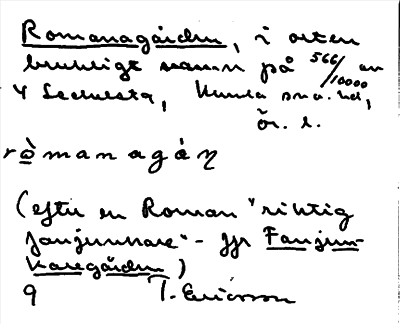 Romanagården, i orten
brukligt namn på 566/10000 av
4 Sechesta, Kumla sn o. hd,
Ör. l.
ròmanagáŋ
(efter en Roman "riktig
fanjunkare" - jfr Fanjun-
karegården)
9 T. Ericsson